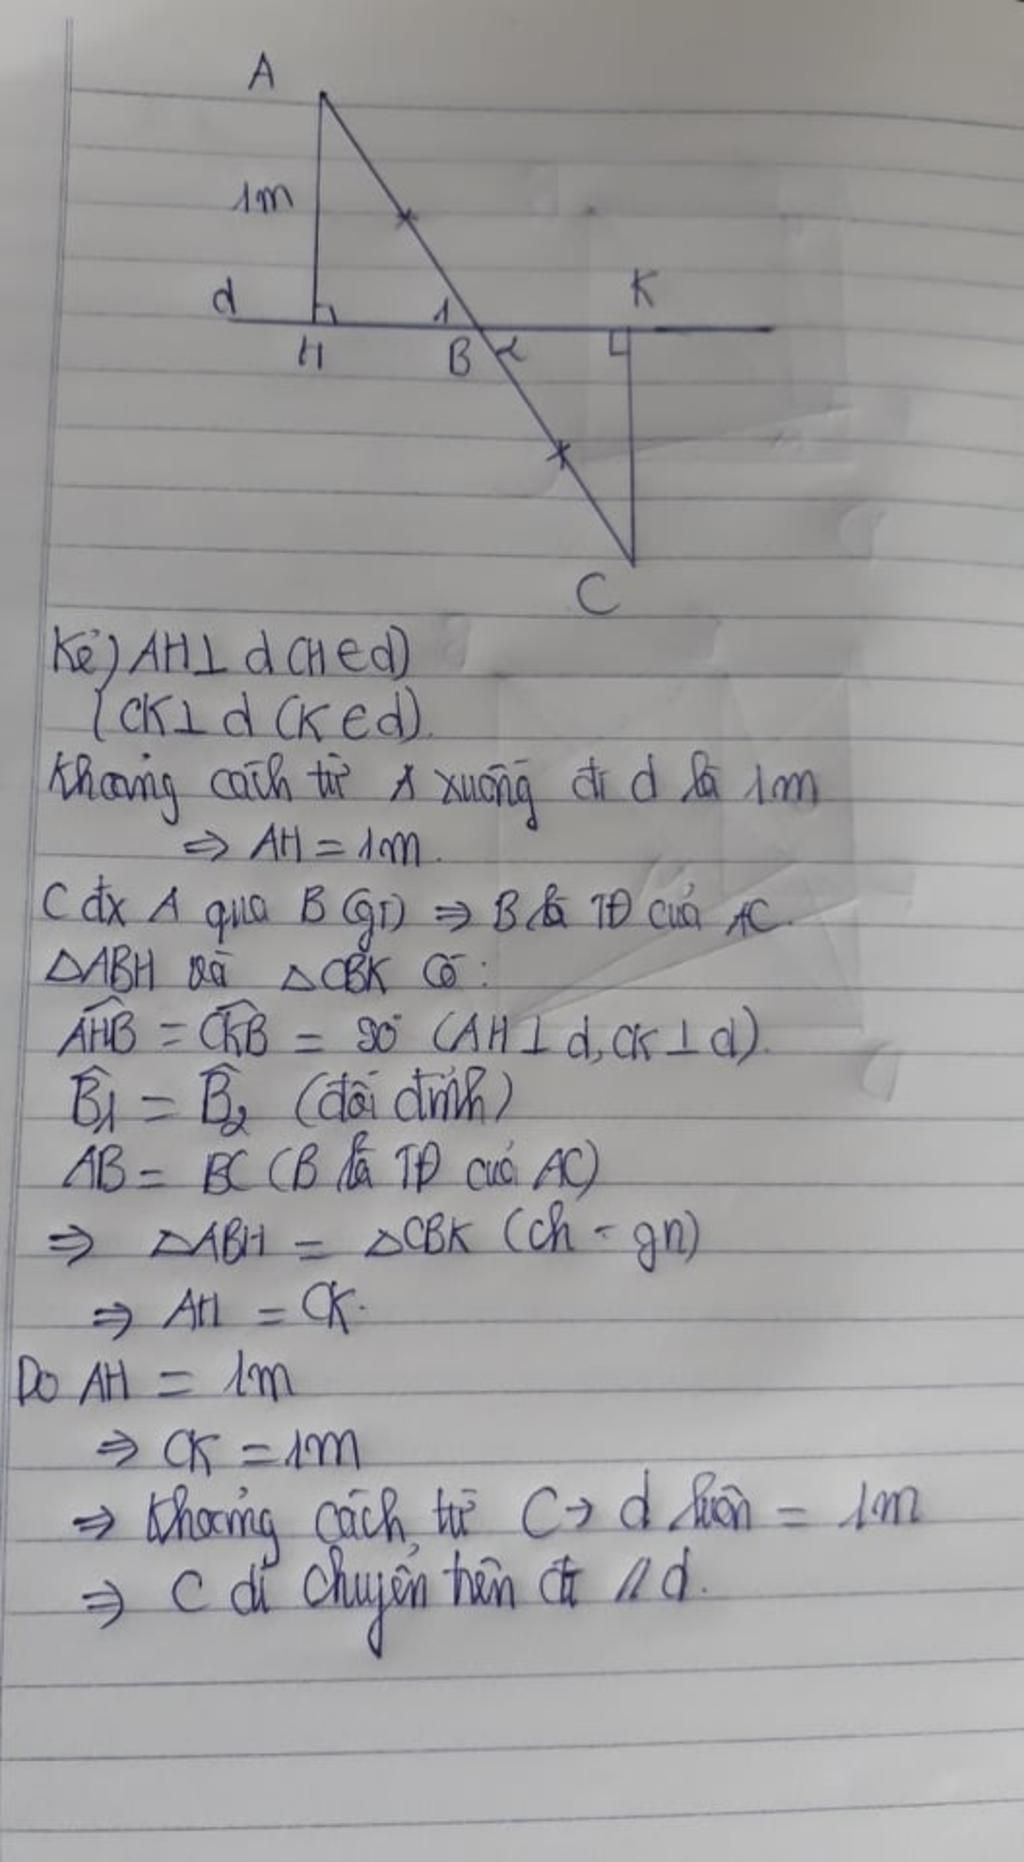 A
1m
d
K
1
H
B
2
C
Kẻ) AH⊥ d (H∈d)
{CK⊥ d (K∈d).
Khoảng cách từ A xuống đt d là 1m
⇒ AH = 1m.
C đx A qua B (gt) ⇒ B là TĐ của AC.
△ABH và △CBK có:
AHB̂ = CKB̂ = 90° (AH⊥d, CK⊥d).
B̂1 = B̂2 (đối đỉnh)
AB = BC (B là TĐ của AC)
⇒ △ABH = △CBK (ch - gn)
⇒ AH = CK.
Do AH = 1m
⇒ CK = 1m
⇒ Khoảng cách từ C → d luôn = 1m
⇒ C di chuyển trên đt // d.